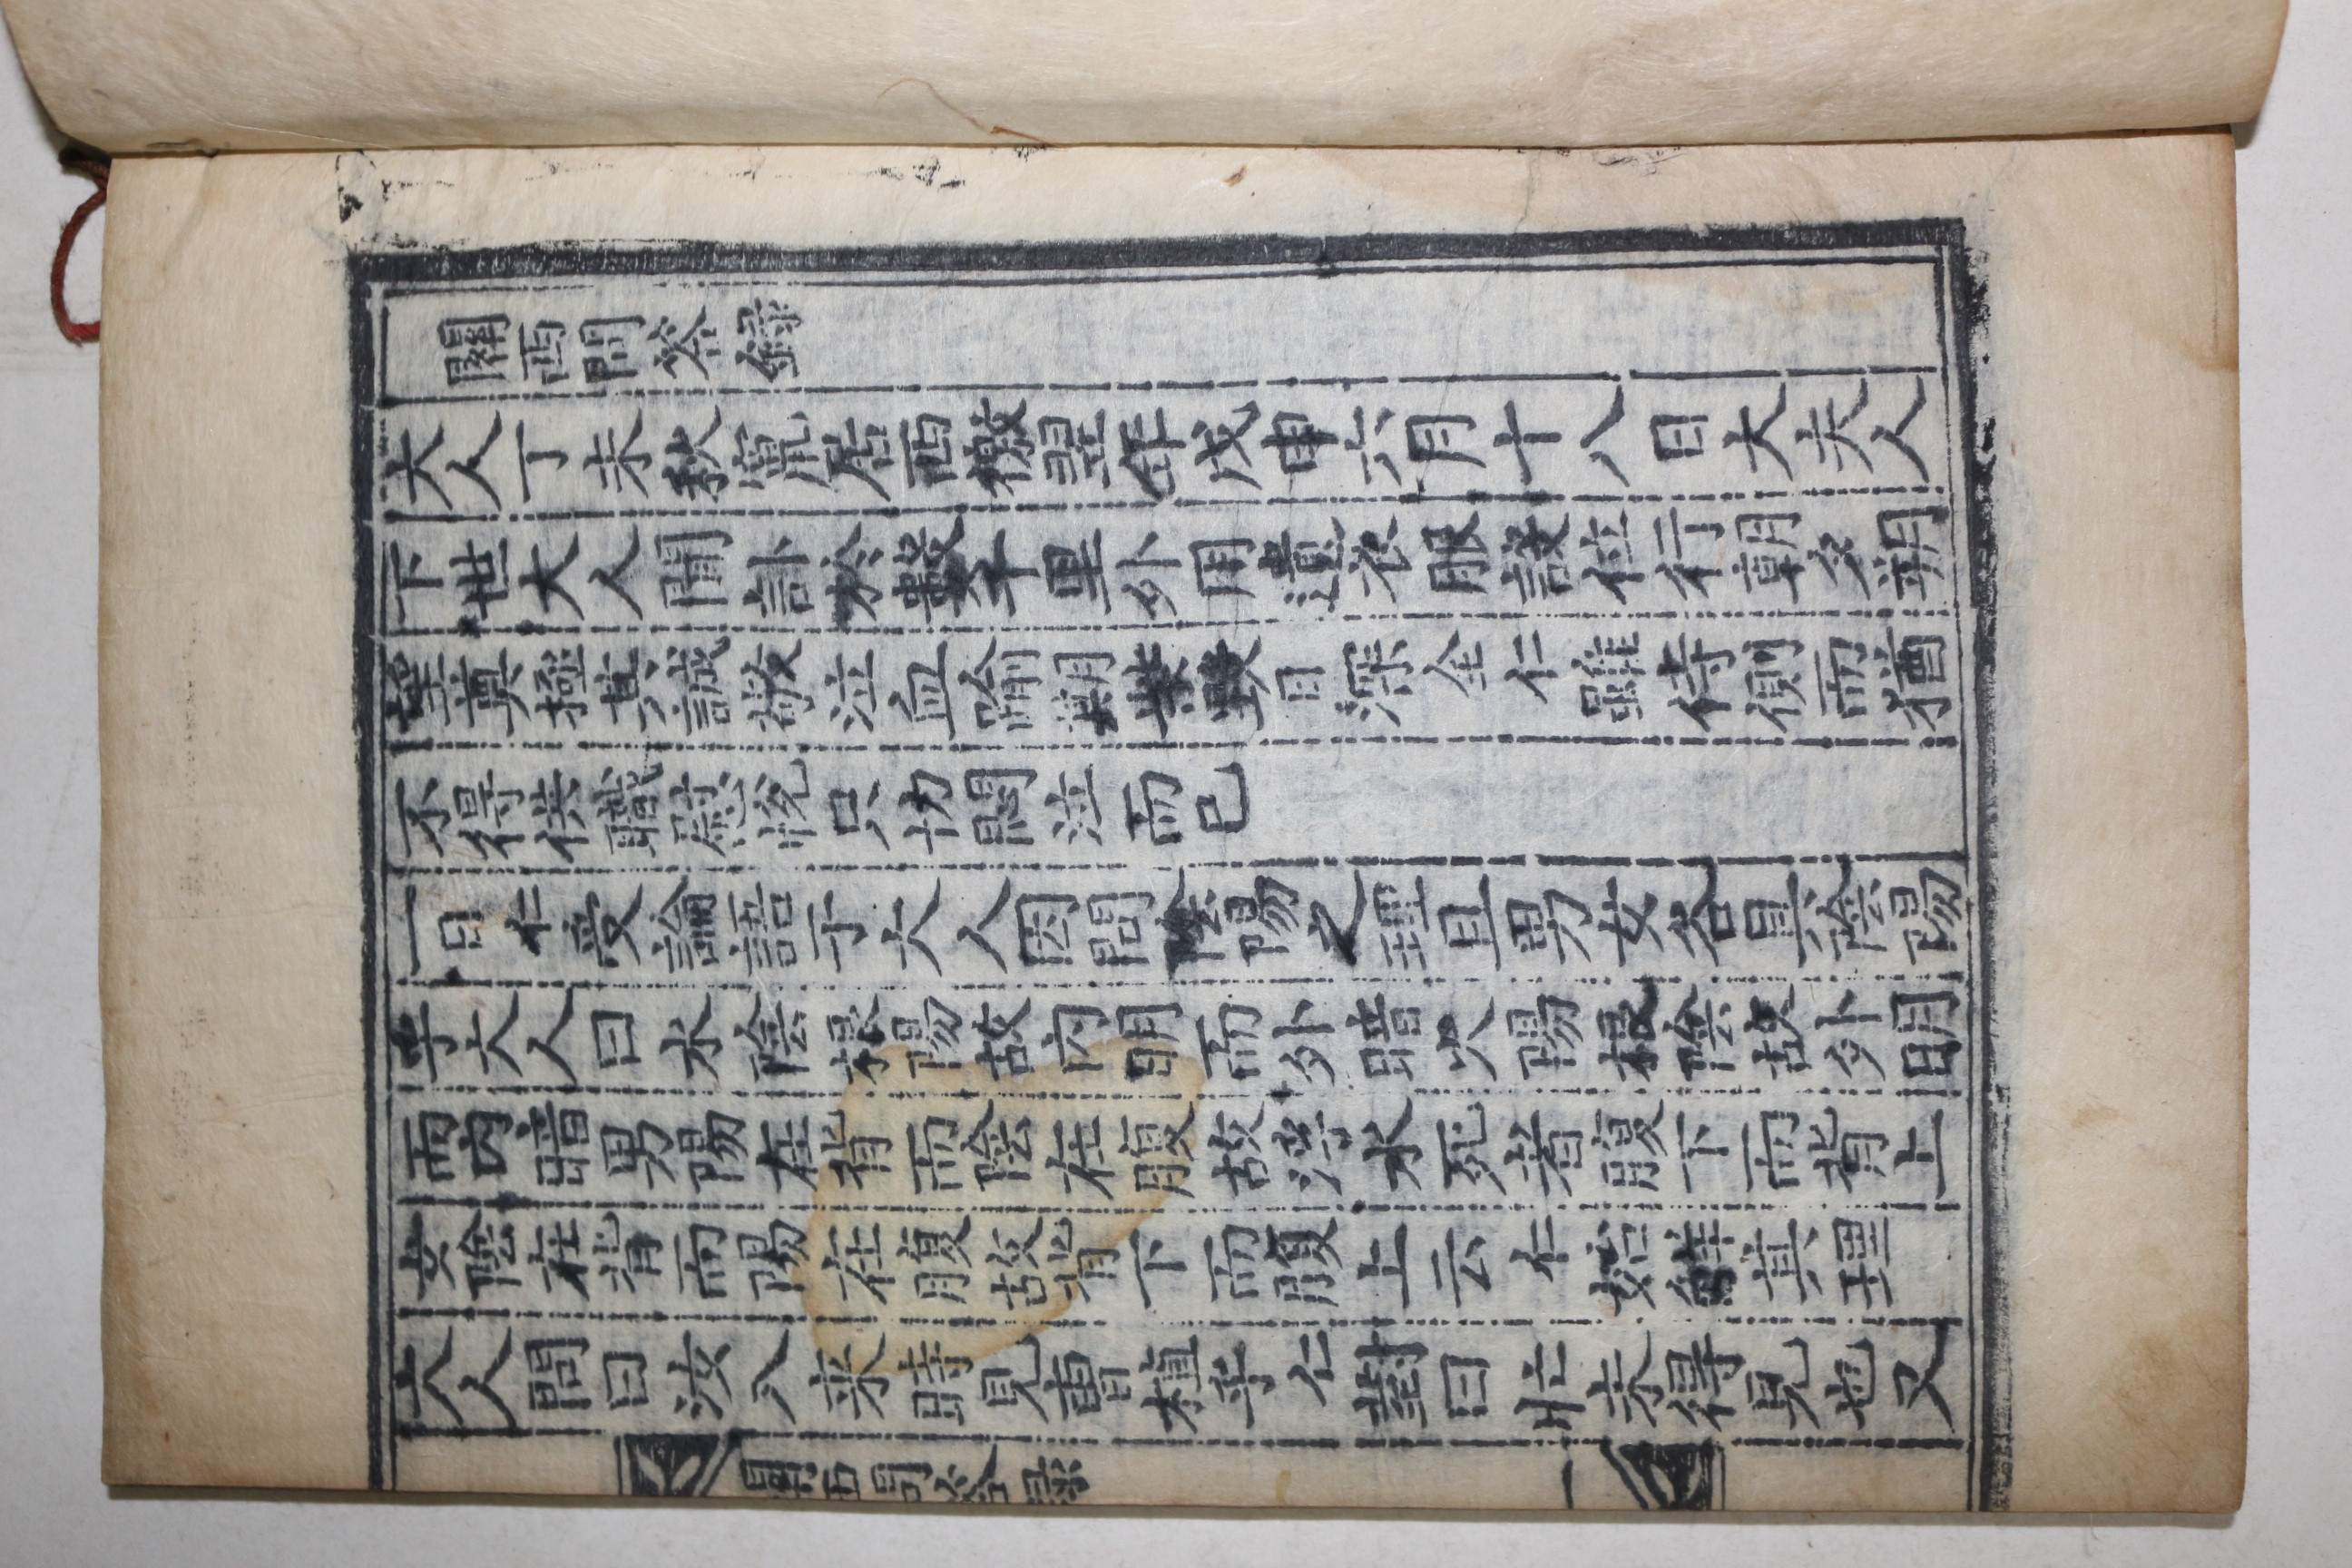 關西問答録
大人丁未秋竄居西檄翌年戊申六月十八日大夫人
下世大人聞訃於數千里外用遺衣服設位行朝夕朔
望奠極其誠敬泣血踰期柴毀日深全仁雖侍側而猶
不得供職慰悅只切悶泣而已
一日仁受論語于大人因問陰陽之理且男女各具陰陽
乎大人曰水陰根陽故内明而外暗火陽根陰故外明
而内暗男陽在背而陰在腹故浮水死者腹下而背上
女陰在背而陽在腹故背下而腹上云仁始觧其理
大人問曰汝入来時見曺植乎仁對曰忙未得見也又
關西問答録
一